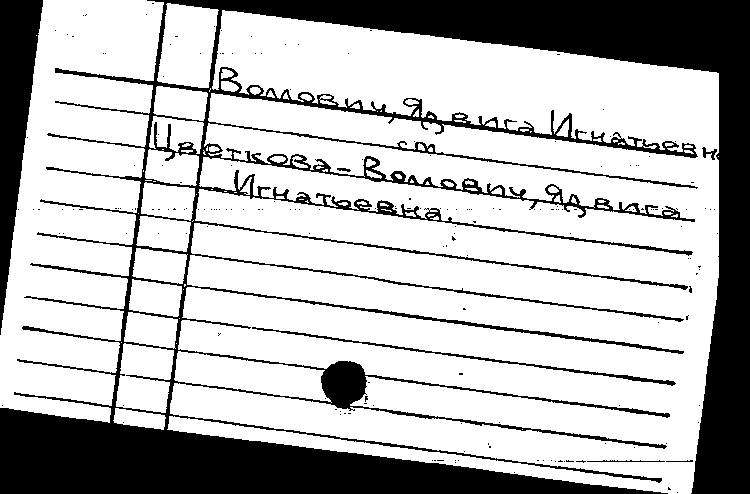 Воллович, Ядвига Игнатьевн
см
Цветкова-Воллович, Ядвига
Игнатьевна.